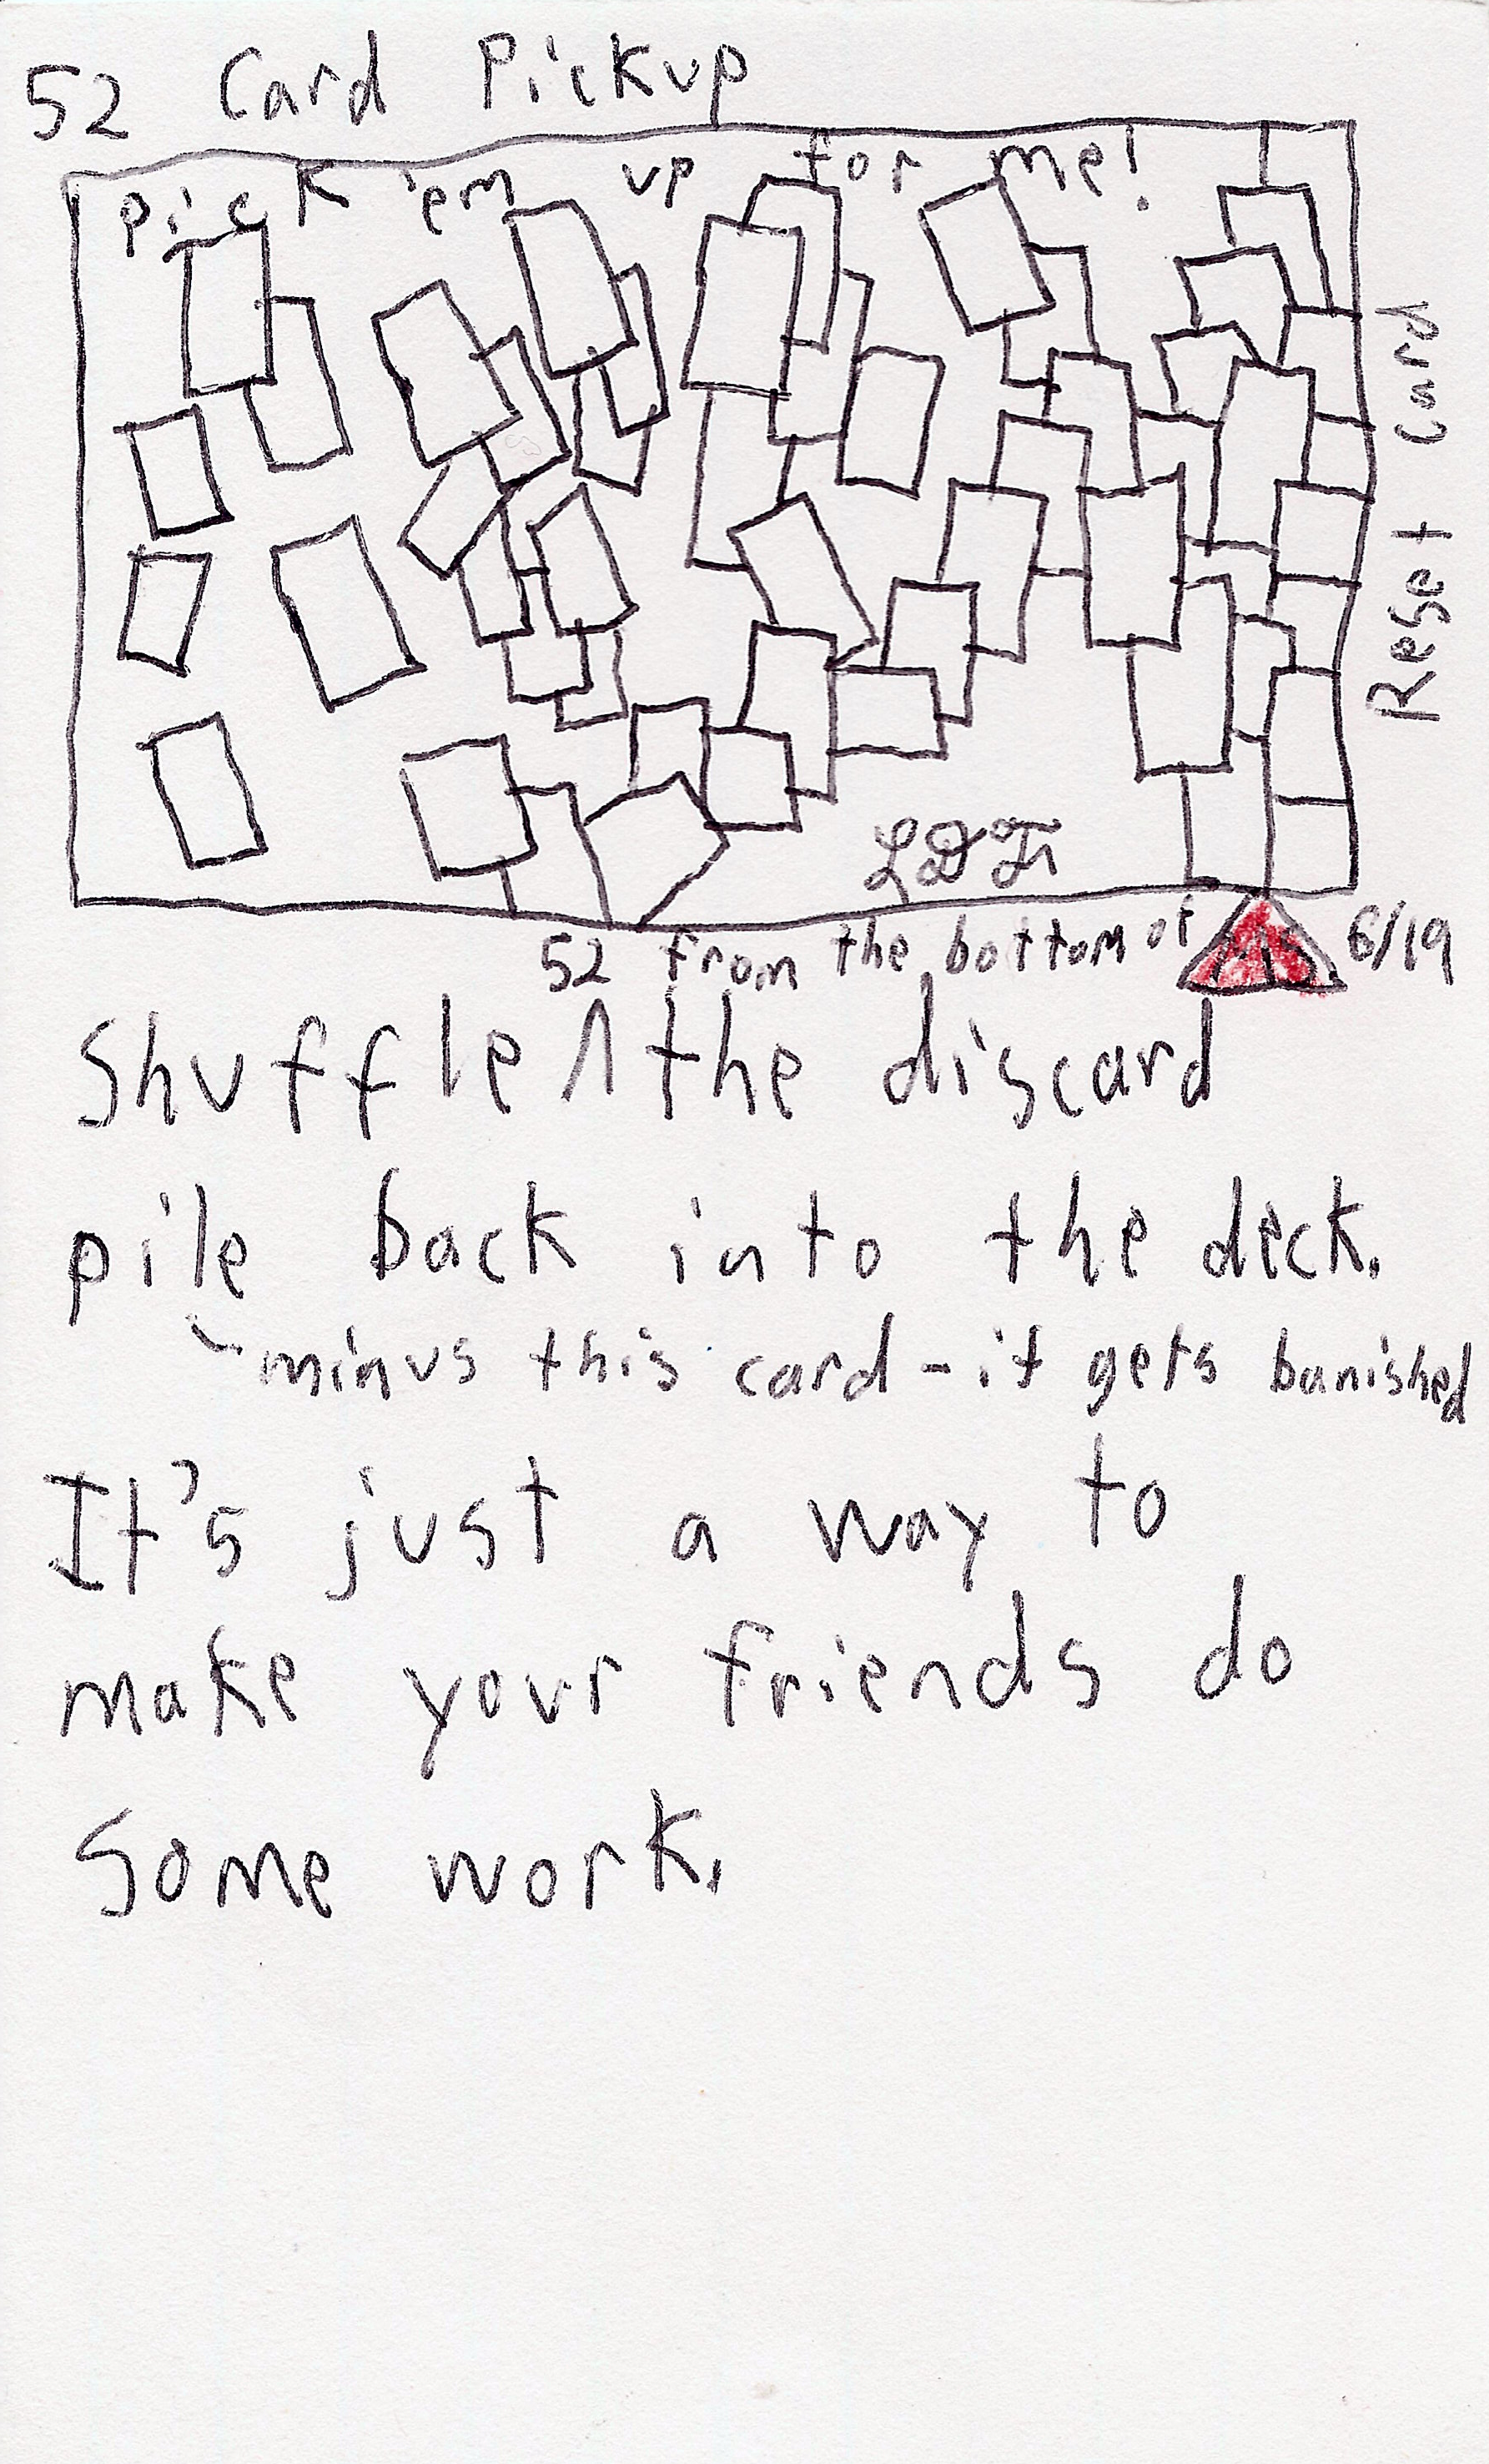 52 Card Pickup
Pick 'em up for me!
Reset Card
LDF
6/19
52 from the bottom of
Shuffle ^ the discard
pile back into the deck.
minus this card - it gets banished
It's just a way to
make your friends do
some work.